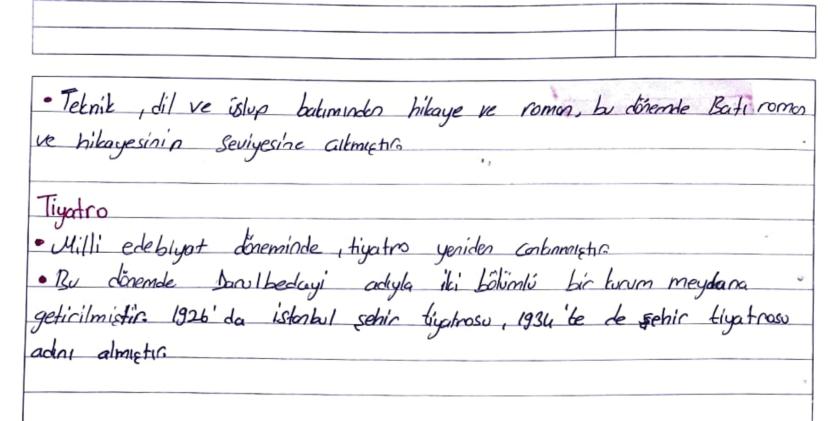 • Teknik , dil ve üslup bakımından hikaye ve roman, bu dönemde Batı roman
ve hikayesinin seviyesine çıkmıştır.
Tiyatro
• Milli edebiyat döneminde , tiyatro yeniden canlanmıştır.
• Bu dönemde Darulbedayi adıyla iki bölümlü bir kurum meydana
getirilmiştir. 1926'da istanbul şehir tiyatrosu, 1934'te de şehir tiyatrosu
adını almıştır.